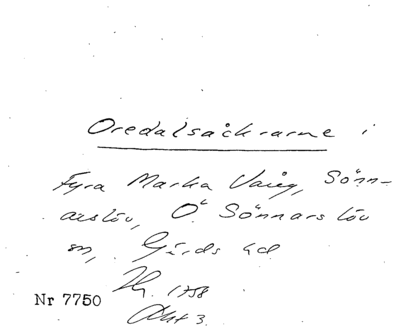 Oredalsåkrarne i
Fyra Marka Vång, Sönn-
arslöv, Ö. Sönnarslöv
sn, Gärds hd
Nr 7750 Lh. 1758
Akt 3.